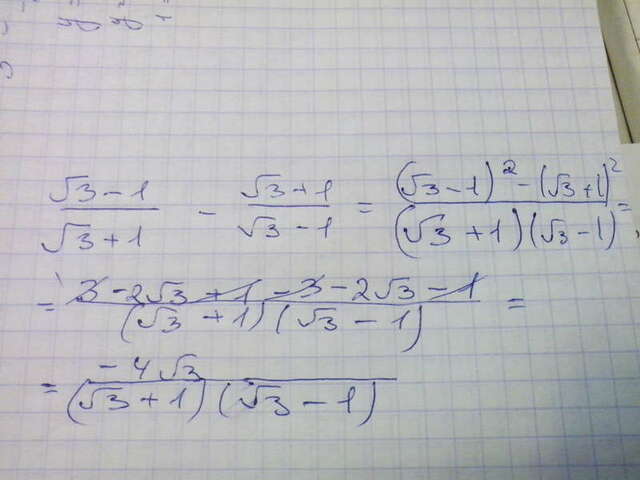 (√3-1)/(√3+1) - (√3+1)/(√3-1) = ((√3-1)² - (√3+1)²)/((√3+1)(√3-1)) =
= (3-2√3+1-3-2√3-1)/((√3+1)(√3-1)) =
= (-4√3)/((√3+1)(√3-1))